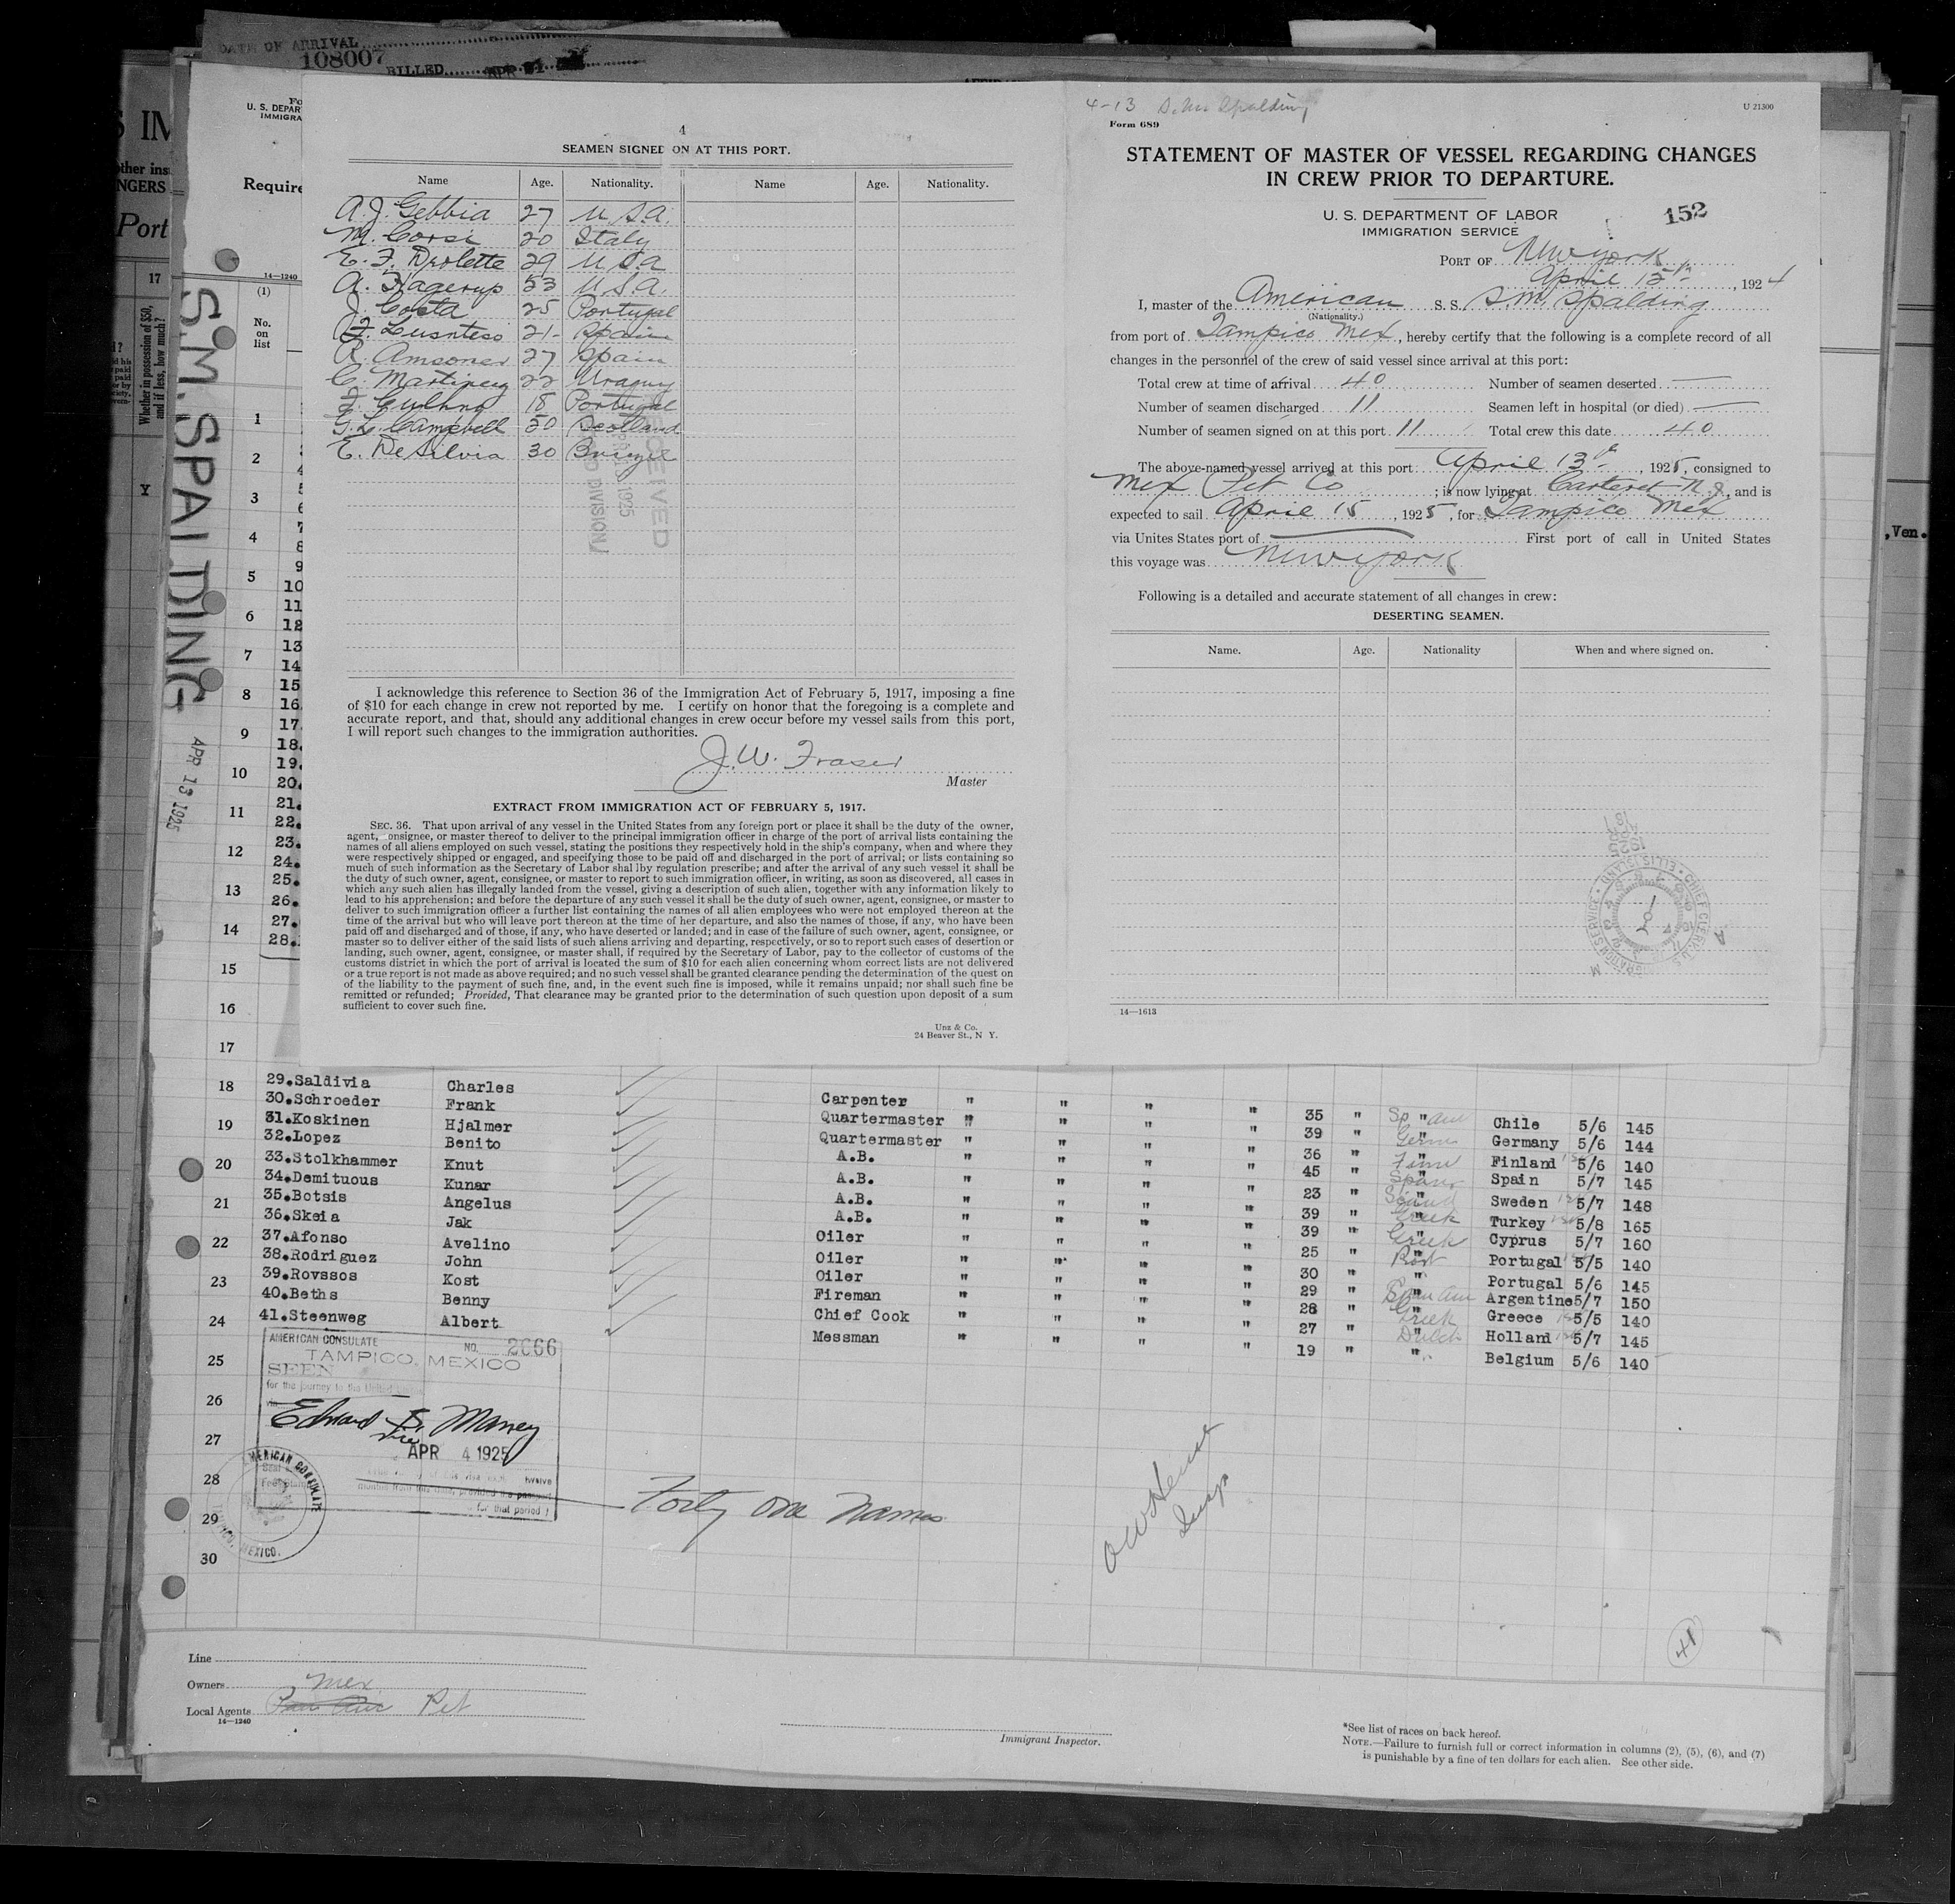 DATE OF ARRIVAL
108007
BILLED
4
SEAMEN SIGNED ON AT THIS PORT.
Name Age. Nationality. Name Age. Nationality.
A. J. Gebbia 27 U.S.A.
M. Corsi 20 Italy
E. F. 29 U.S.A
A. Hagerup 53 U.S.A.
J. Costa 25 Portugal
21 Spain
R. 27 Spain
C. 22
18 Portugal
G. L. Campbell 50 Scotland
E. DeSilvia 30
RECEIVED
1925
DIVISION
I acknowledge this reference to Section 36 of the Immigration Act of February 5, 1917, imposing a fine
of $10 for each change in crew not reported by me. I certify on honor that the foregoing is a complete and
accurate report, and that, should any additional changes in crew occur before my vessel sails from this port,
I will report such changes to the immigration authorities.
J. W. Fraser
Master
EXTRACT FROM IMMIGRATION ACT OF FEBRUARY 5, 1917.
SEC. 36. That upon arrival of any vessel in the United States from any foreign port or place it shall be the duty of the owner,
agent, consignee, or master thereof to deliver to the principal immigration officer in charge of the port of arrival lists containing the
names of all aliens employed on such vessel, stating the positions they respectively hold in the ship's company, when and where they
were respectively shipped or engaged, and specifying those to be paid off and discharged in the port of arrival; or lists containing so
much of information as the Secretary of Labor shal lby regulation prescribe; and after the arrival of any such vessel it shall be
the duty of such owner, agent, consignee, or master to report to such immigration officer, in writing, as soon as discovered, all cases in
which any such alien has illegally landed from the vessel, giving a description of such alien, together with any information likely to
lead to his apprehension; and before the departure of any such vessel it shall be the duty of such owner, agent, consignee, or master to
deliver to such immigration officer a further list containing the names of all alien employees who were not employed thereon at the
time of the arrival but who will leave port thereon at the time of her departure, and also the names of those, if any, who have been
paid off and discharged and of those, if any, who have deserted or landed; and in case of the failure of such owner, agent, consignee, or
master so to deliver either of the said lists of such aliens arriving and departing, respectively, or so to report such cases of desertion or
landing, such owner, agent, consignee, or master shall, if required by the Secretary of Labor, pay to the collector of customs of the
customs district in which the port of arrival is located the sum of $10 for each alien concerning whom correct lists are not delivered
or a true report is not made as above required; and no such vessel shall be granted clearance pending the determination of the quest on
of the liability to the payment of such fine, and, in the event such fine is imposed, while it remains unpaid; nor shall such fine be
remitted or refunded; Provided, That clearance may be granted prior to the determination of such question upon deposit of a sum
sufficient to cover such fine.
Unz & Co.
24 Beaver St., N Y.
4-13 S. M. Spalding
U 21300
Form 689
STATEMENT OF MASTER OF VESSEL REGARDING CHANGES
IN CREW PRIOR TO DEPARTURE.
U. S. DEPARTMENT OF LABOR
IMMIGRATION SERVICE
152
PORT OF New York
April 15th, 1924
I, master of the American S. S. S. M. Spalding
(Nationality.)
from port of Tampico Mex, hereby certify that the following is a complete record of all
changes in the personnel of the crew of said vessel since arrival at this port:
Total crew at time of arrival 40 Number of seamen deserted —
Number of seamen discharged 11 Seamen left in hospital (or died) —
Number of seamen signed on at this port 11 Total crew this date 40
The above-named vessel arrived at this port April 13th, 1925, consigned to
Mex Pet Co; is now lying at Carteret N.J., and is
expected to sail April 15, 1925, for Tampico Mex
via Unites States port of — First port of call in United States
this voyage was New York
Following is a detailed and accurate statement of all changes in crew:
DESERTING SEAMEN.
Name. Age. Nationality When and where signed on.
14—1613
S.M.SPALDING
APR 13 1925
U. S. DEPAR
IMMIGRA
Require
14—1240
(1)
No.
on
list
17
Whether in possession of $50,
and if less, how much?
Port
,Ven.
29.Saldivia Charles Carpenter " " " " 35 " " Chile 5/6 145
30.Schroeder Frank Quartermaster " " " " 39 " " Germany 5/6 144
31.Koskinen Hjalmer Quartermaster " " " " 36 " " Finland 5/6 140
32.Lopez Benito A.B. " " " " 45 " " Spain 5/7 145
33.Stolkhammer Knut A.B. " " " " 23 " " Sweden 5/7 148
34.Demituous Kunar A.B. " " " " 39 " Greek Turkey 5/8 165
35.Botsis Angelus A.B. " " " " 39 " Greek Cyprus 5/7 160
36.Skeia Jak Oiler " " " " 25 " Port Portugal 5/5 140
37.Afonso Avelino Oiler " " " " 30 " " Portugal 5/6 145
38.Rodriguez John Oiler " " " " 29 " " Argentine 5/7 150
39.Rovssos Kost Fireman " " " " 28 " Greek Greece 5/5 140
40.Beths Benny Chief Cook " " " " 27 " Dutch Holland 5/7 145
41.Steenweg Albert Messman " " " 19 " " Belgium 5/6 140
AMERICAN CONSULATE NO. 2666
TAMPICO, MEXICO
SEEN
for the journey to the United
Edward S. Maney
Vice
APR 4 1925
for that period
AMERICAN CONSULATE
MEXICO.
Forty one names
41
Line
Owners Mex
Local Agents Pan Am Pet
14—1240
Immigrant Inspector.
*See list of races on back hereof.
NOTE.—Failure to furnish full or correct information in columns (2), (5), (6), and (7)
is punishable by a fine of ten dollars for each alien. See other side.